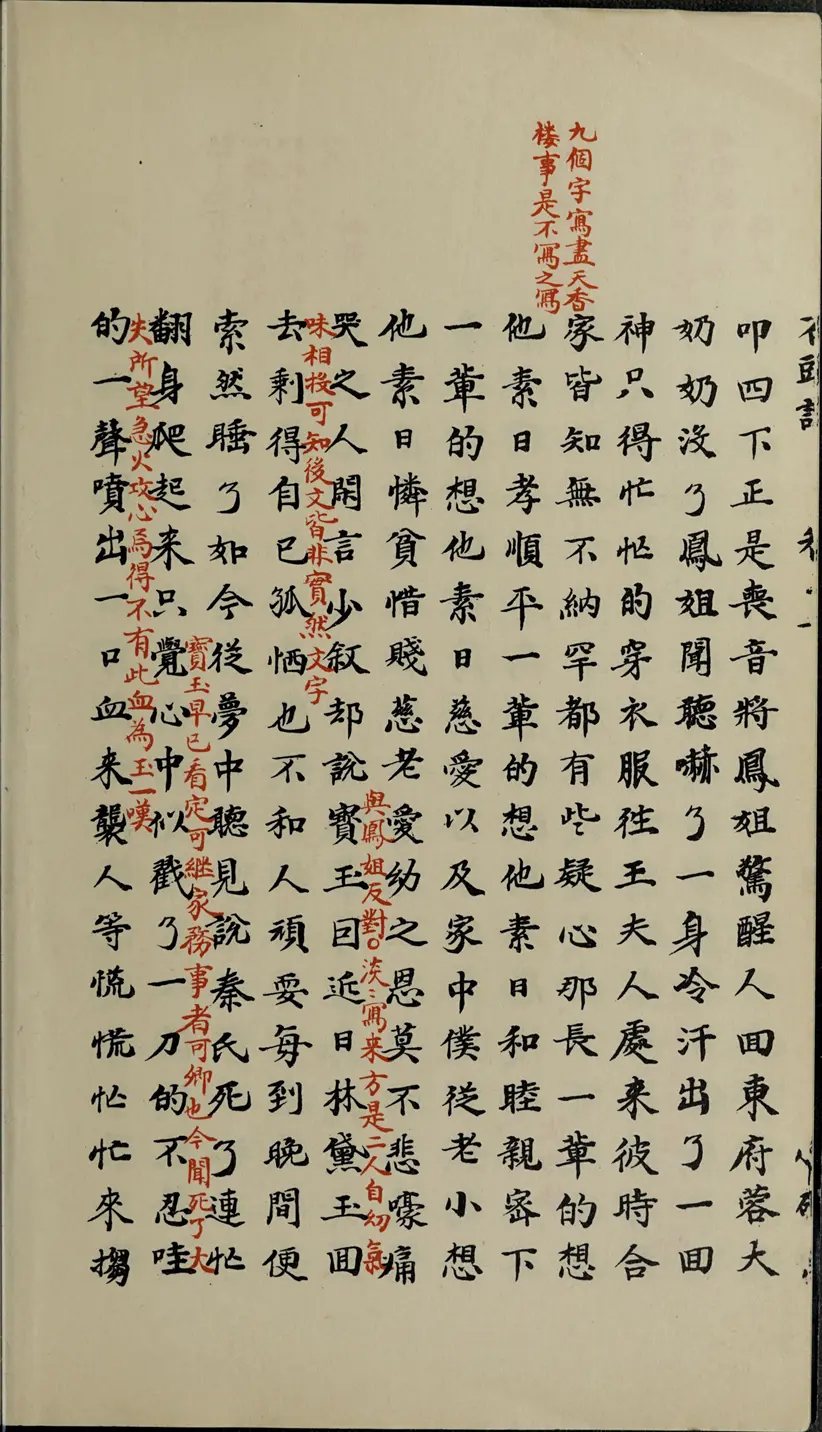 九個字寫盡天香
楼事是不寫之寫
叩四下正是喪音將鳳姐驚醒人回東府蓉大
奶奶沒了鳳姐聞聽嚇了一身冷汗出了一回
神只得忙忙的穿衣服徃王夫人處来彼時合
家皆知無不納罕都有些疑心那長一輩的想
他素日孝順平一輩的想他素日和睦親密下
一輩的想他素日慈愛以及家中僕從老小想
他素日憐貧惜賤慈老愛幼之恩莫不悲嚎痛
與鳳姐反對。淡ミ寫来方是二人自幼氣
哭之人閑言少叙却說寶玉因近日林黛玉回
味相投可知後文皆非實然文字
去剩得自己孤恓也不和人頑耍每到晚間便
索然睡了如今從夢中聽見說秦氏死了連忙
寶玉早已看定可継家務事者可卿也今聞死了大
翻身爬起来只覺心中似戳了一刀的不忍哇
失所望急火攻心焉得不有此血為玉一嘆
的一聲噴出一口血来襲人等慌慌忙忙來搊